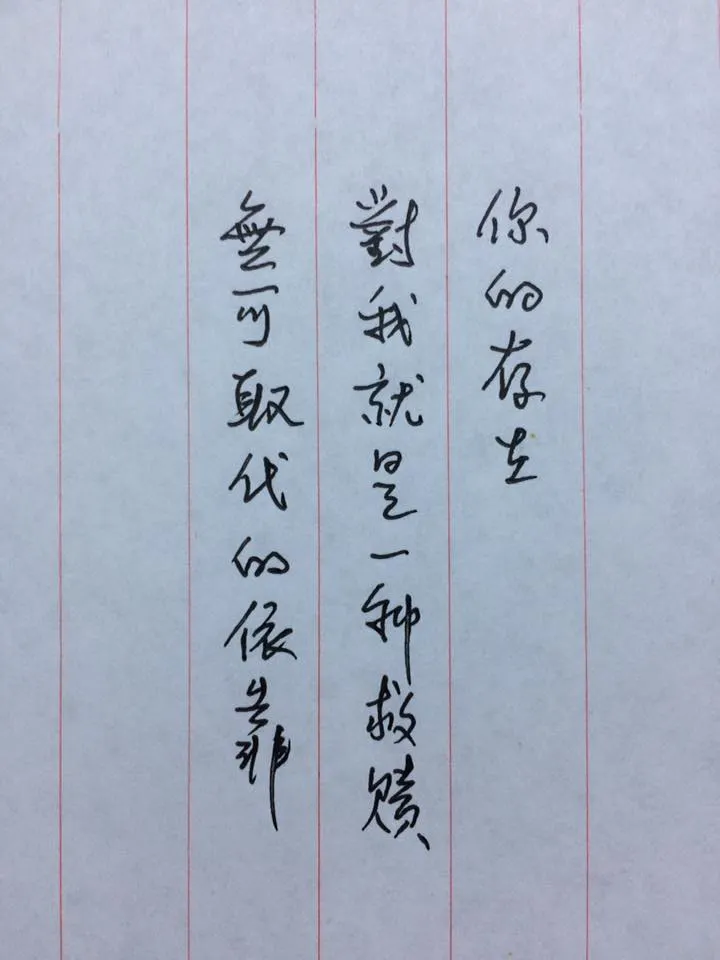 你的存在
對我就是一种救赎
無可取代的依靠